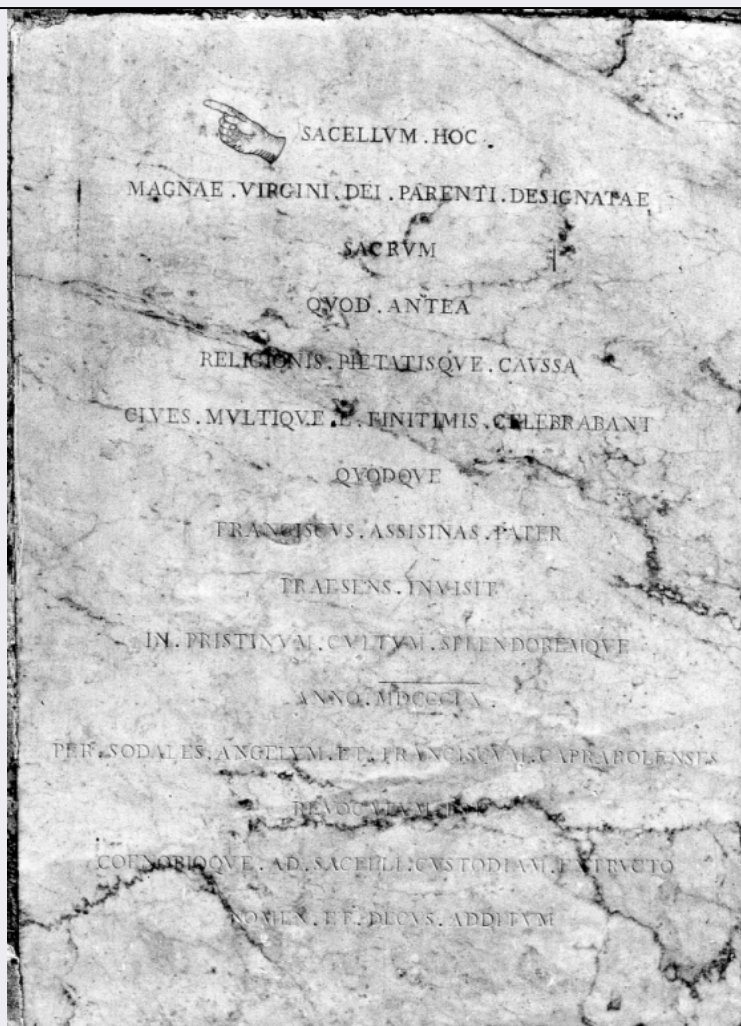 SACELLVM . HOC .
MAGNAE . VIRGINI . DEI . PARENTI . DESIGNATAE
SACRVM
QVOD . ANTEA
RELIGIONIS . PIETATISQVE . CAVSSA
CIVES . MVLTIQVE . E . FINITIMIS . CELEBRABANT
QVODQVE
FRANCISCVS . ASSISINAS . PATER
PRAESENS . INVISIT
IN . PRISTINVM . CVLTVM . SPLENDOREMQVE
ANNO . MDCCCLX .
PER . SODALES . ANGELVM . ET . FRANCISCVM . CAPRABOLENSES
REVOCATVM
COENOBIOQVE . AD . SACELLI . CVSTODIAM . EXTRVCTO
NOMEN . ET . DECVS . ADDITVM